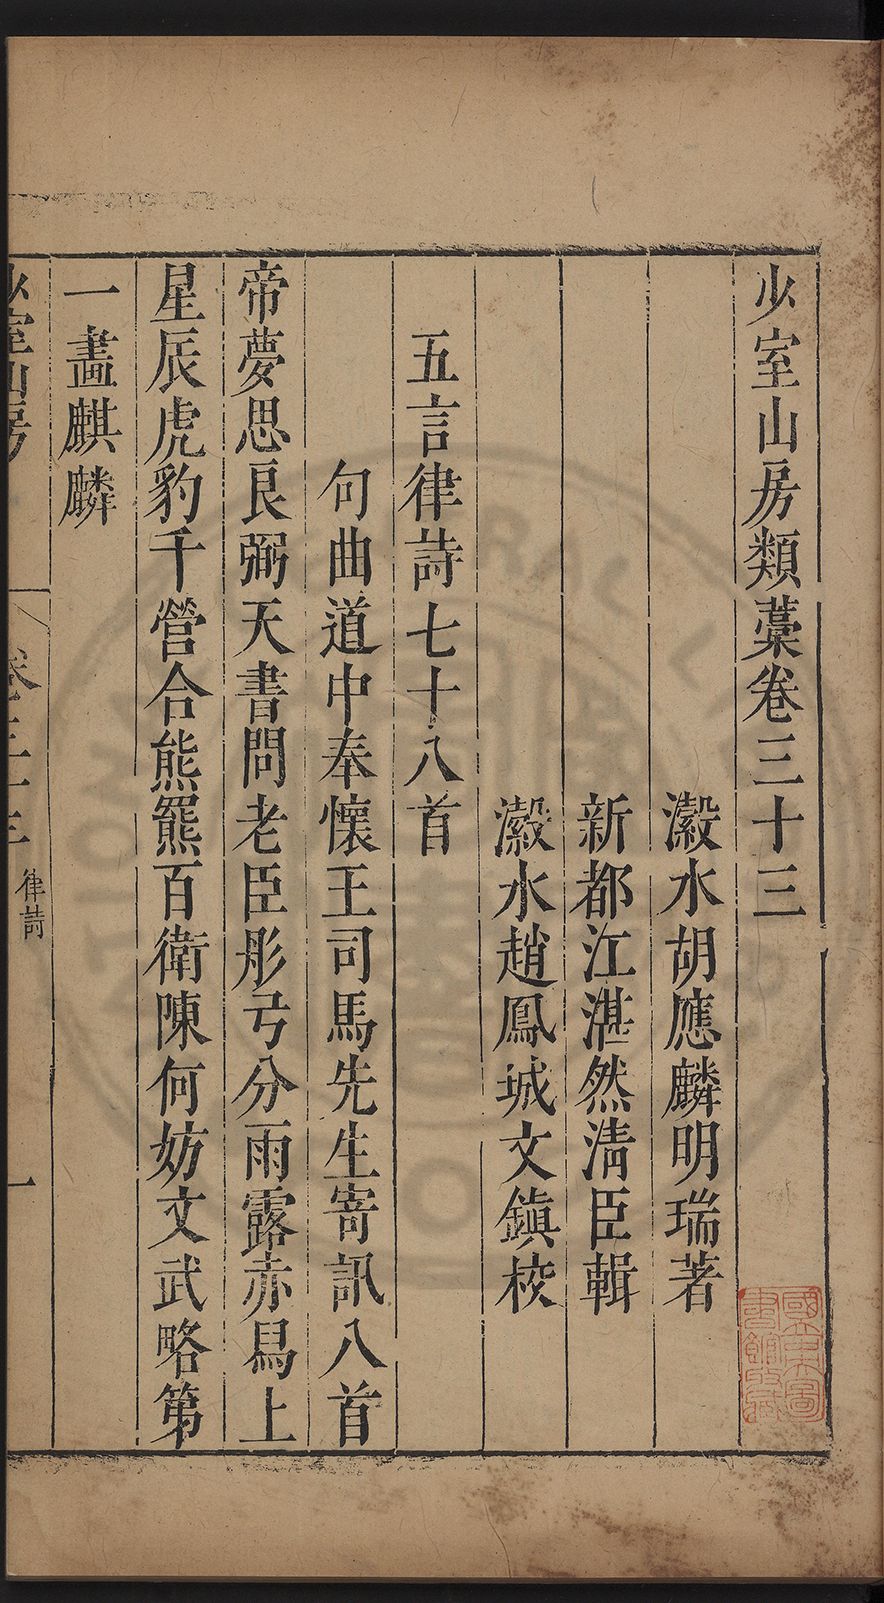 少室山房類藁卷三十三
瀫水胡應麟明瑞著
新都江湛然清臣輯
瀫水趙鳳城文鎮校
五言律詩七十八首
句曲道中奉懷王司馬先生寄訊八首
帝夢思良弼天書問老臣彤弓分雨露赤舄上
星辰虎豹千營合熊羆百衛陳何妨文武略第
一畫麒麟
少室山房
卷三十三
律詩
一
國立東圖
書館收藏